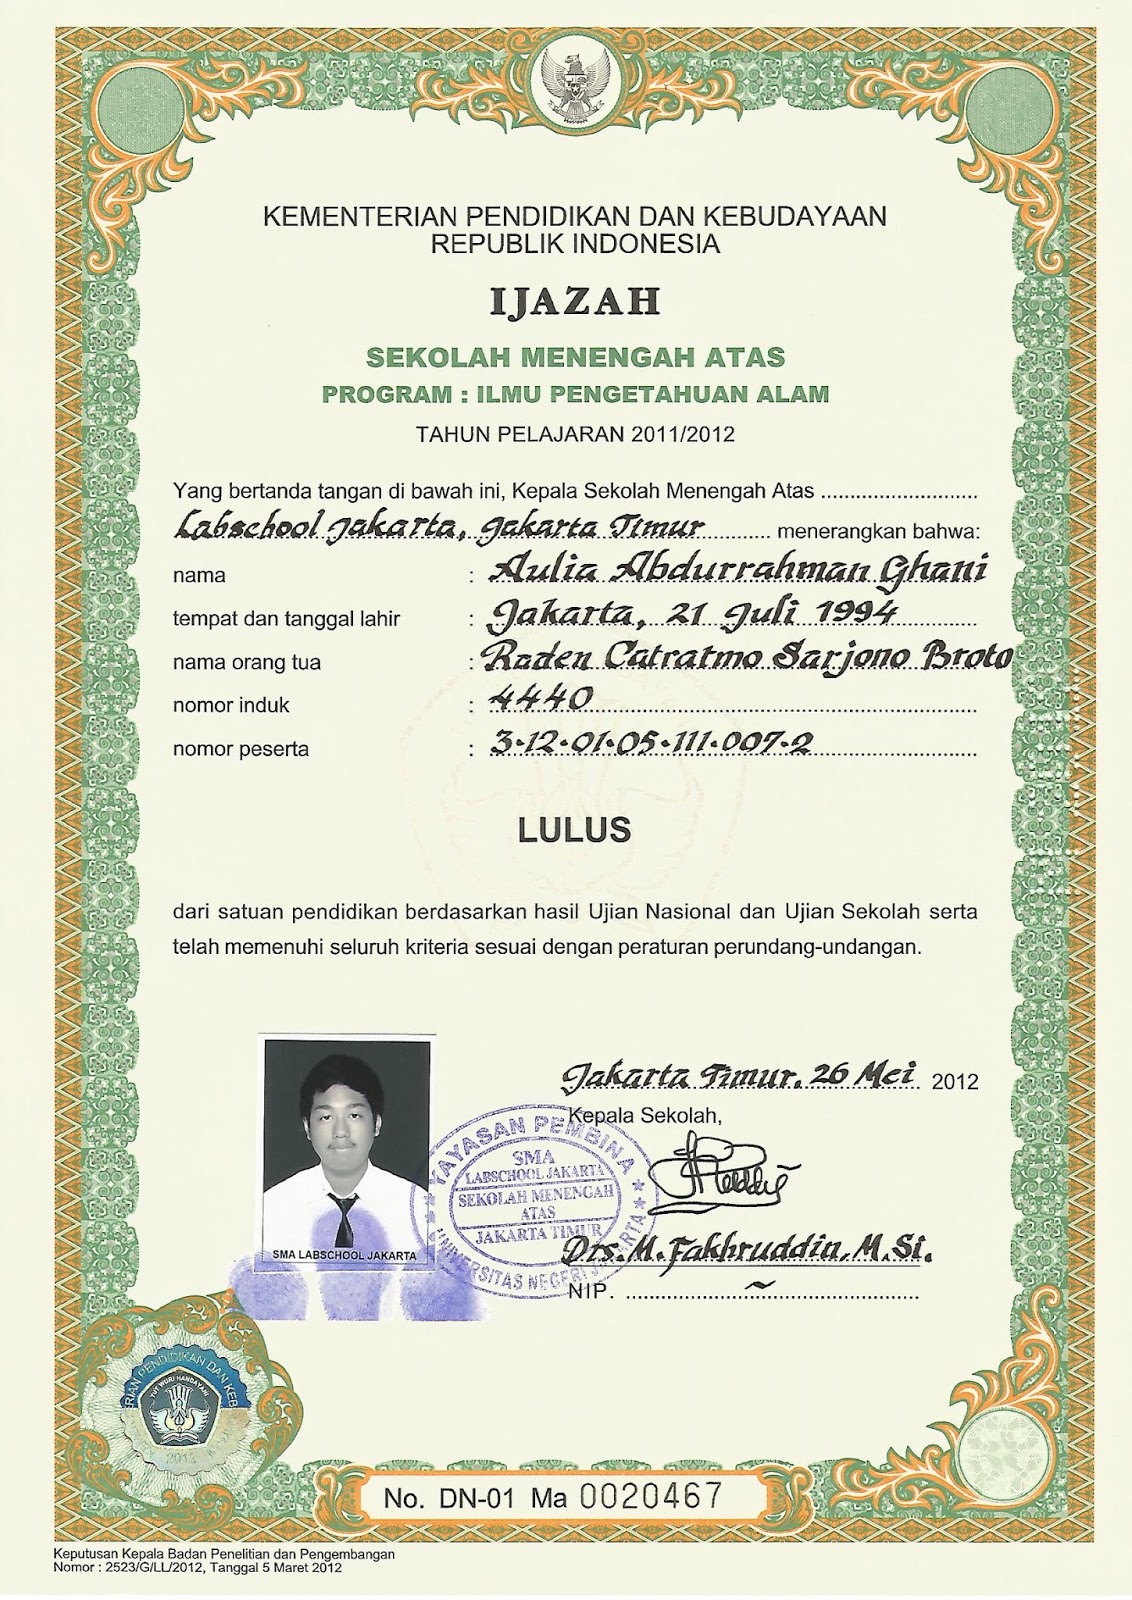 KEMENTERIAN PENDIDIKAN DAN KEBUDAYAAN
REPUBLIK INDONESIA
IJAZAH
SEKOLAH MENENGAH ATAS
PROGRAM : ILMU PENGETAHUAN ALAM
TAHUN PELAJARAN 2011/2012
Yang bertanda tangan di bawah ini, Kepala Sekolah Menengah Atas ..........................
Labschool Jakarta, Jakarta Timur ........... menerangkan bahwa:
nama : Aulia Abdurrahman Ghani
tempat dan tanggal lahir : Jakarta, 21 Juli 1994
nama orang tua : Raden Catratmo Sarjono Broto
nomor induk : 4440
nomor peserta : 3-12-01-05-111-007-2
LULUS
dari satuan pendidikan berdasarkan hasil Ujian Nasional dan Ujian Sekolah serta
telah memenuhi seluruh kriteria sesuai dengan peraturan perundang-undangan.
Jakarta Timur, 26 Mei 2012
Kepala Sekolah,
YAYASAN PEMBINA
SMA
LABSCHOOL JAKARTA
SEKOLAH MENENGAH
ATAS
JAKARTA TIMUR
UNIVERSITAS NEGERI JAKARTA
SMA LABSCHOOL JAKARTA
Drs. M. Fakhruddin, M.Si.
NIP. ~
RIAN PENDIDIKAN DAN KEB
TUT WURI HANDAYANI
2012
No. DN-01 Ma 0020467
Keputusan Kepala Badan Penelitian dan Pengembangan
Nomor : 2523/G/LL/2012, Tanggal 5 Maret 2012